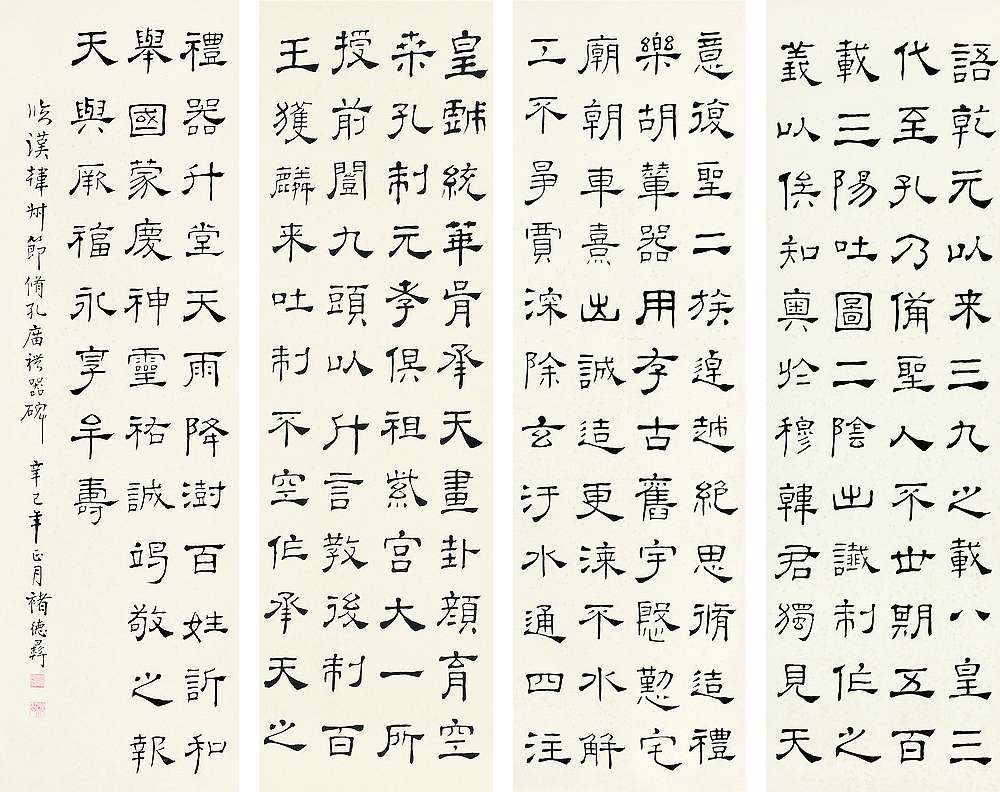 皇戲統華胥承天畫卦顏育空
桑孔制元孝俱祖紫宮大一所
授前闓九頭以升言教後制百
王獲麟来吐制不空作承天之
語乾元以来三九之載八皇三
代至孔乃備聖人不世期五百
載三陽吐圖二陰出讖制作之
義以俟知奧於穆韓君獨見天
意復聖二族逴越絕思脩造禮
樂胡輦器用存古舊宇慇懃宅
廟朝車熹出誠造更漆不水解
工不爭賈深除玄汙水通四注
禮器升堂天雨降澍百姓訢和
舉國蒙慶神靈祐誠竭敬之報
天與厥福永享牟壽
臨漢韓勑節脩孔廟禮器碑 辛巳年正月褚德彝